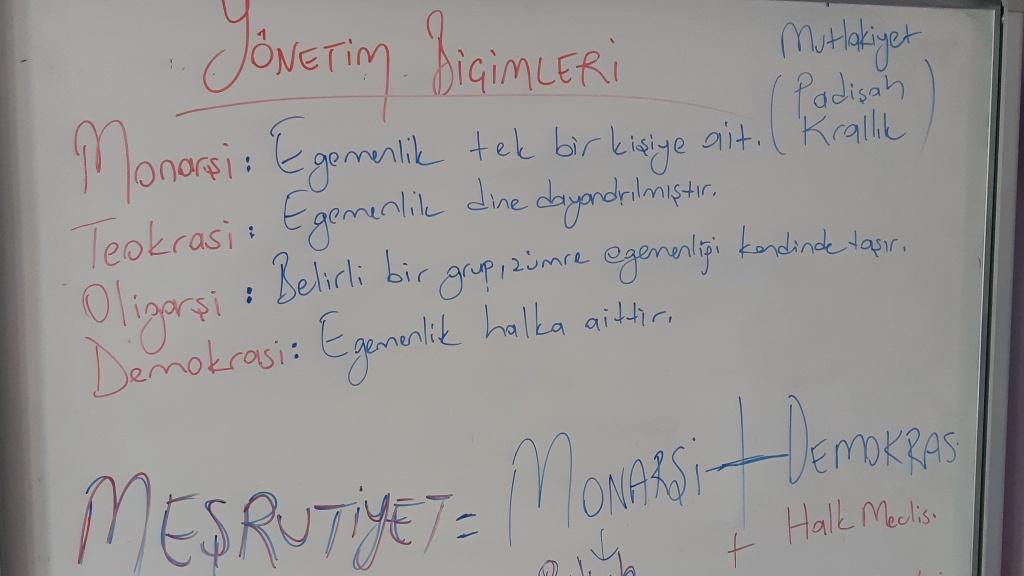 YÖNETİM BİÇİMLERİ
Mutlakiyet
Monarşi: Egemenlik tek bir kişiye ait. (Padişah
Krallık)
Teokrasi: Egemenlik dine dayandrılmıştır.
Oligarşi: Belirli bir grup, zümre egemenliği kendinde taşır.
Demokrasi: Egemenlik halka aittir.
MEŞRUTİYET = MONARŞİ + DEMOKRAS
+ Halk Meclis.